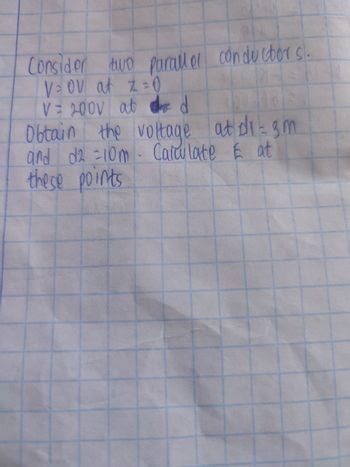 Consider two parallel conductors.
V=0V at z=0
V=200V at d
Obtain the voltage at d1=3m
and d2=10m. Calculate E at
these points